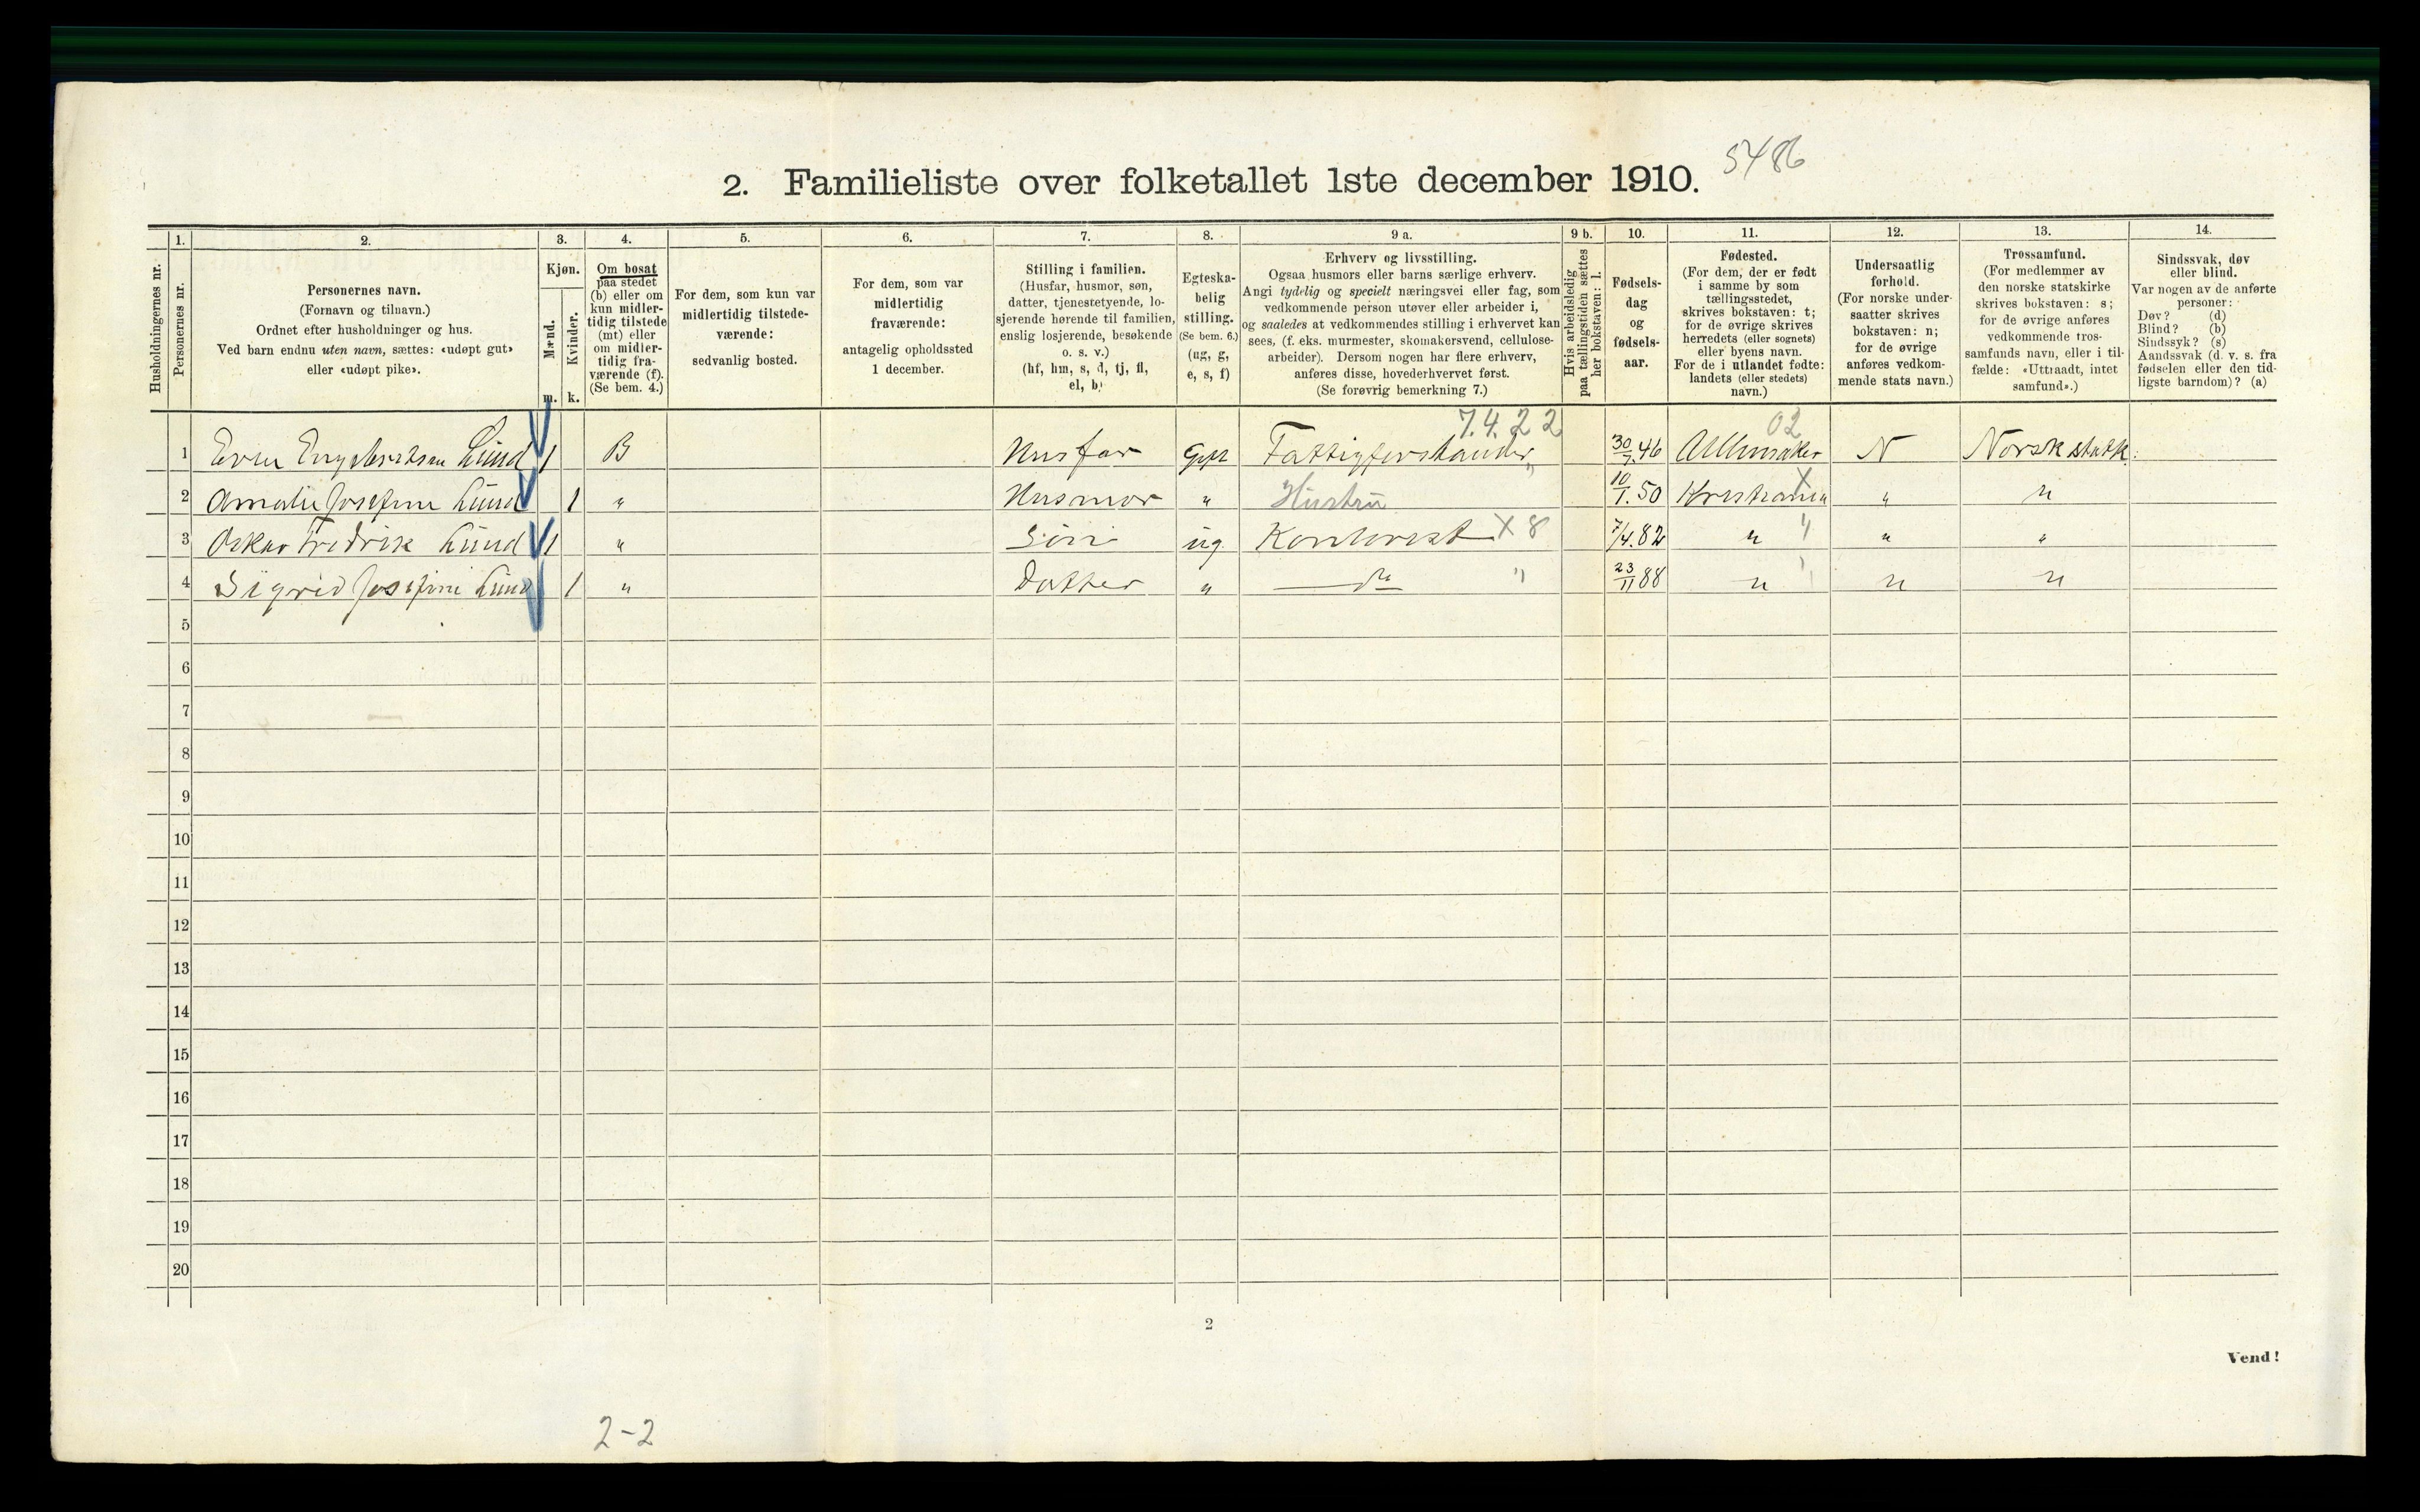 5486
2. Familieliste over folketallet 1ste december 1910.
Husholdningernes nr.
1.
Personernes nr.
2.
Personernes navn.
(Fornavn og tilnavn.)
Ordnet efter husholdninger og hus.
Ved barn endnu uten navn, sættes: «udøpt gut»
eller «udøpt pike».
3.
Kjøn.
Mænd.
Kvinder.
m. k.
4.
Om bosat
paa stedet
(b) eller om
kun midler-
tidig tilstede
(mt) eller
om midler-
tidig fra-
værende (f).
(Se bem. 4.)
5.
For dem, som kun var
midlertidig tilstede-
værende:
sedvanlig bosted.
6.
For dem, som var
midlertidig
fraværende:
antagelig opholdssted
1 december.
7.
Stilling i familien.
(Husfar, husmor, søn,
datter, tjenestetyende, lo-
sjerende hørende til familien,
enslig losjerende, besøkende
o. s. v.)
(hf, hm, s, d, tj, fl,
el, b)
8.
Egteska-
belig
stilling.
(Se bem. 6.)
(ug, g,
e, s, f)
9 a.
Erhverv og livsstilling.
Ogsaa husmors eller barns særlige erhverv.
Angi tydelig og specielt næringsvei eller fag, som
vedkommende person utøver eller arbeider i,
og saaledes at vedkommendes stilling i erhvervet kan
sees, (f. eks. murmester, skomakersvend, cellulose-
arbeider). Dersom nogen har flere erhverv,
anføres disse, hovederhvervet først.
(Se forøvrig bemerkning 7.)
9 b.
Hvis arbeidsledig
paa tællingstiden sættes
her bokstaven: l.
10.
Fødsels-
dag
og
fødsels-
aar.
11.
Fødested.
(For dem, der er født
i samme by som
tællingsstedet,
skrives bokstaven: t;
for de øvrige skrives
herredets (eller sognets)
eller byens navn.
For de i utlandet fødte:
landets (eller stedets)
navn.)
12.
Undersaatlig
forhold.
(For norske under-
saatter skrives
bokstaven: n;
for de øvrige
anføres vedkom-
mende stats navn.)
13.
Trossamfund.
(For medlemmer av
den norske statskirke
skrives bokstaven: s;
for de øvrige anføres
vedkommende tros-
samfunds navn, eller i til-
fælde: «Uttraadt, intet
samfund».)
14.
Sindssvak, døv
eller blind.
Var nogen av de anførte
personer:
Døv? (d)
Blind? (b)
Sindssyk? (s)
Aandssvak (d. v. s. fra
fødselen eller den tid-
ligste barndom)? (a)
7.4.22 02
1 Even Engebretsen Lund 1 B Husfar Gift Fattigforstander 30/7.46 Ullensaker N Norsk statk.
2 Amalie Josefine Lund 1 " Husmor " Hustru " 10/1.50 Kristiania X " "
3 Oskar Fredrik Lund 1 " Søn ug. Kontorist X 8 7/4.82 " " " "
4 Sigrid Josefine Lund 1 " Datter " do " 23/11 88 " " " "
5
6
7
8
9
10
11
12
13
14
15
16
17
18
19
20
2
Vend!
2-2